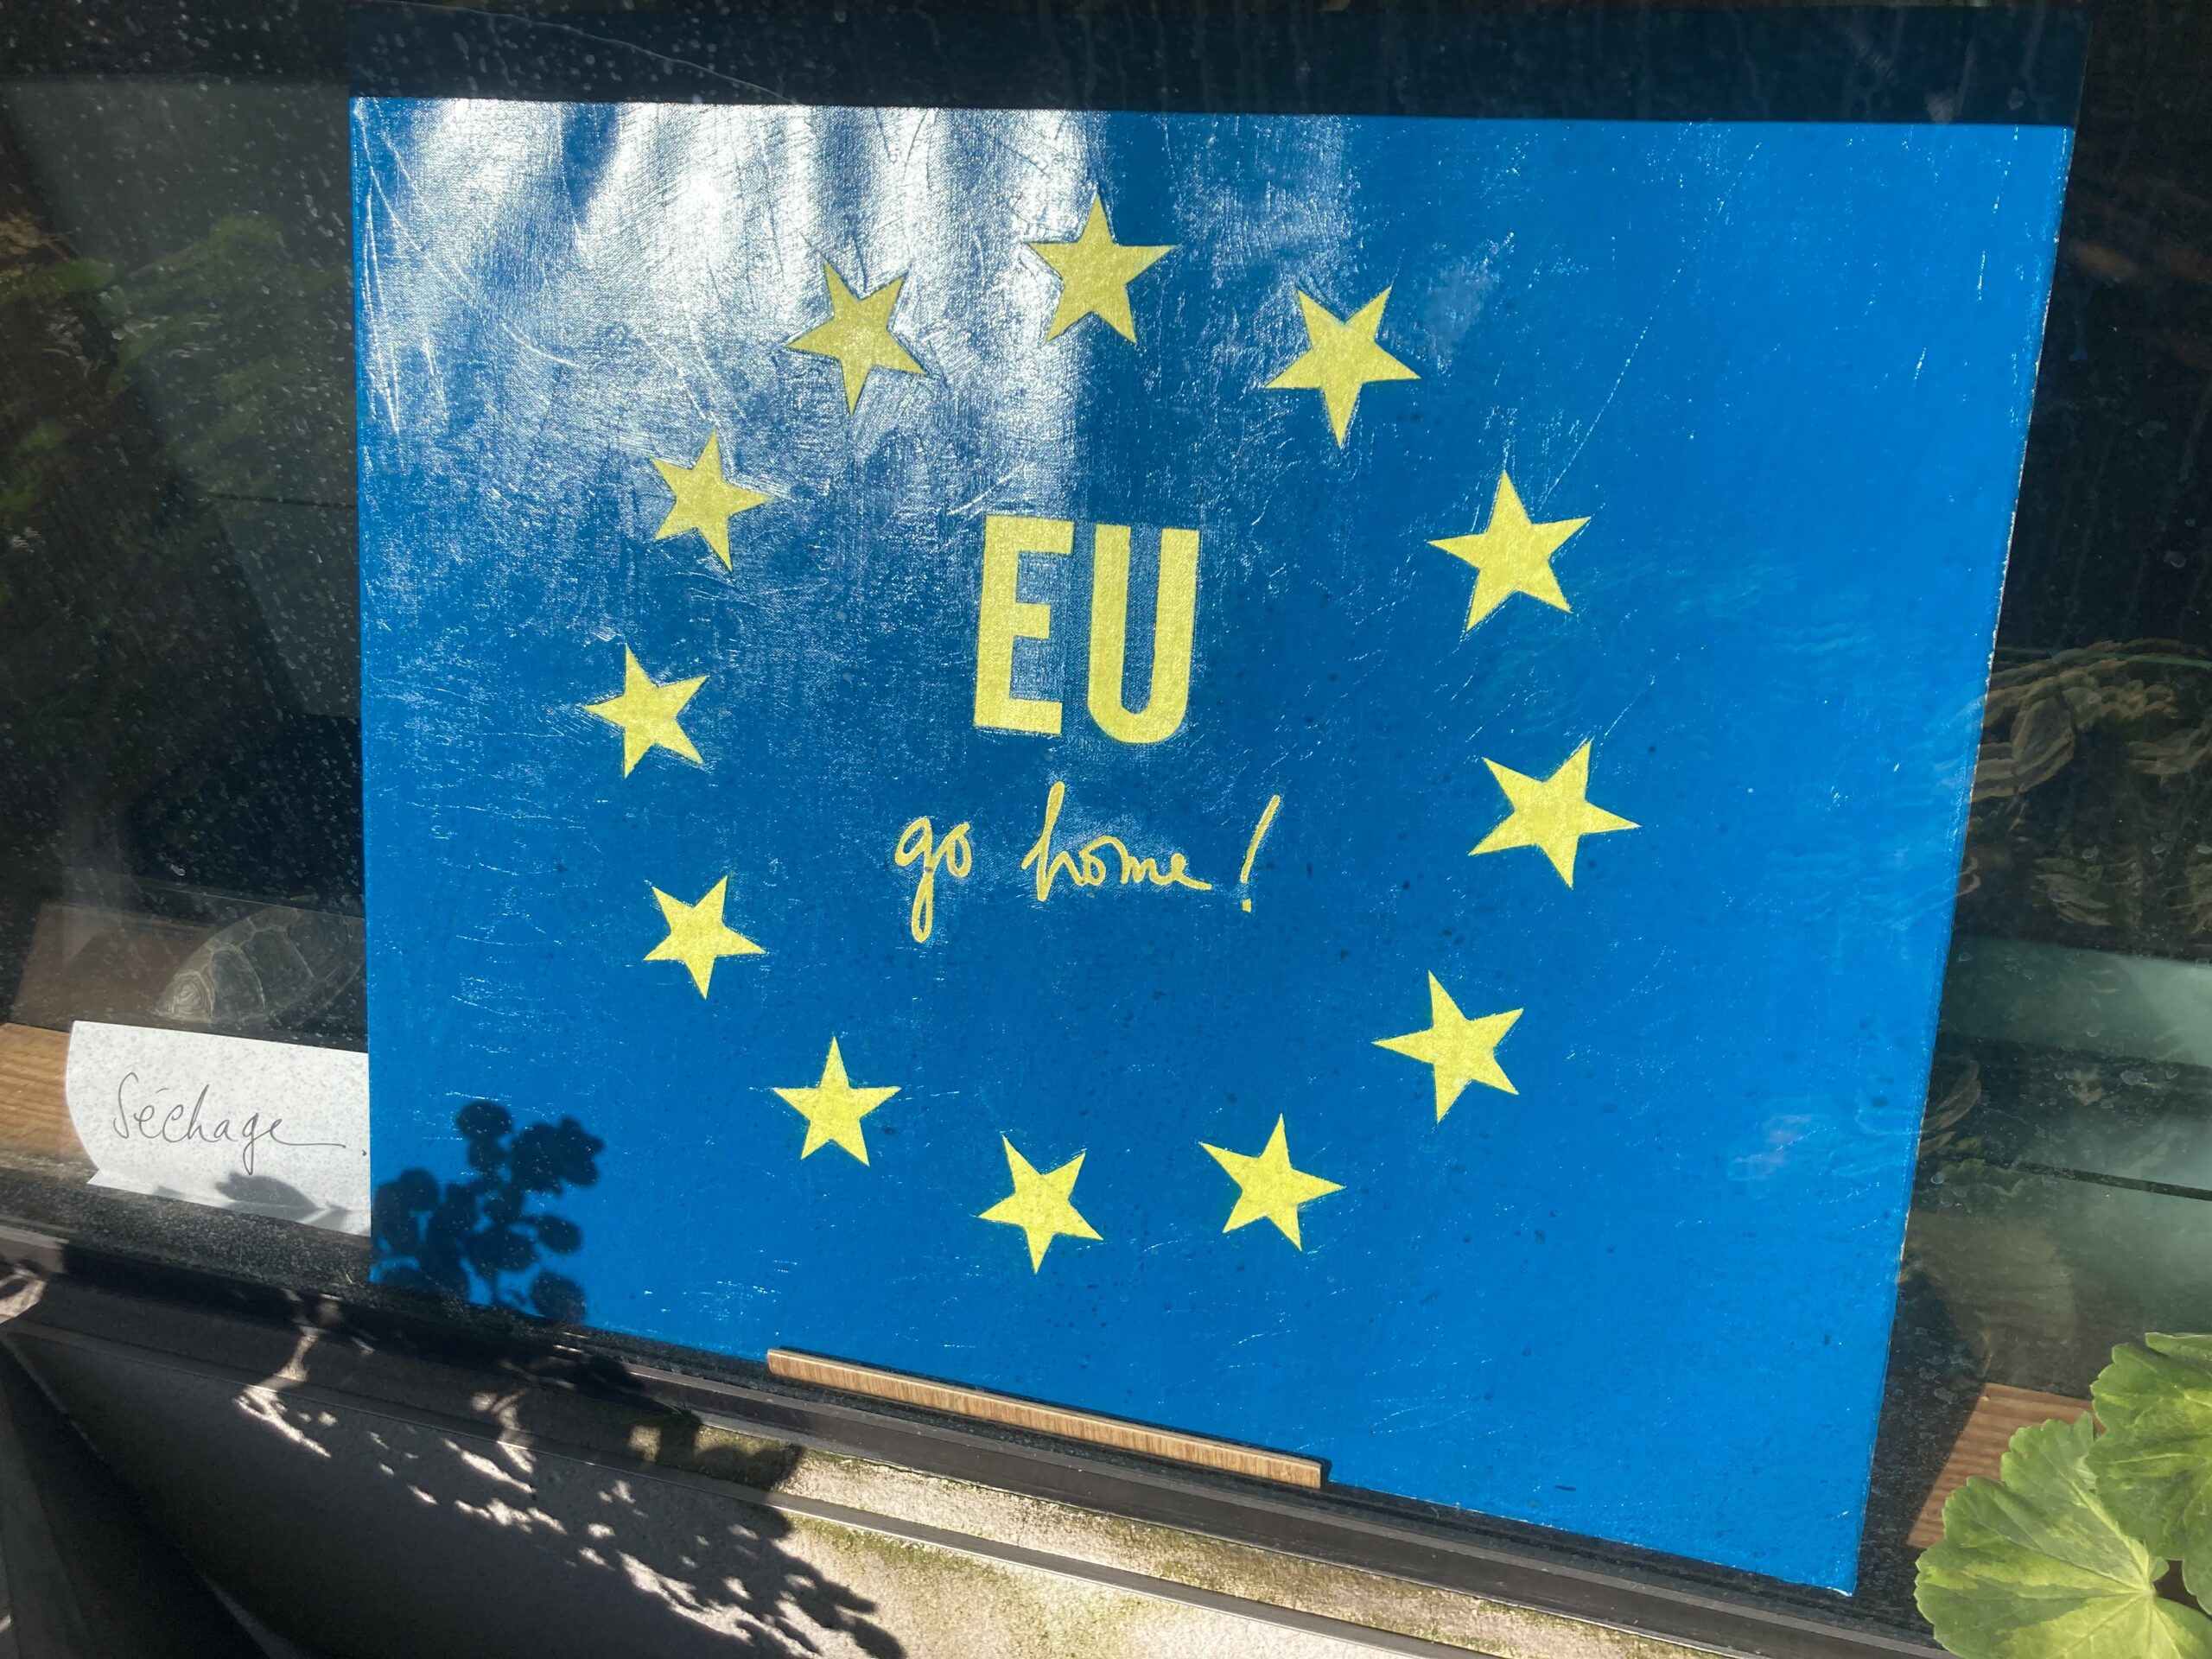 EU
go home!
Séchage.